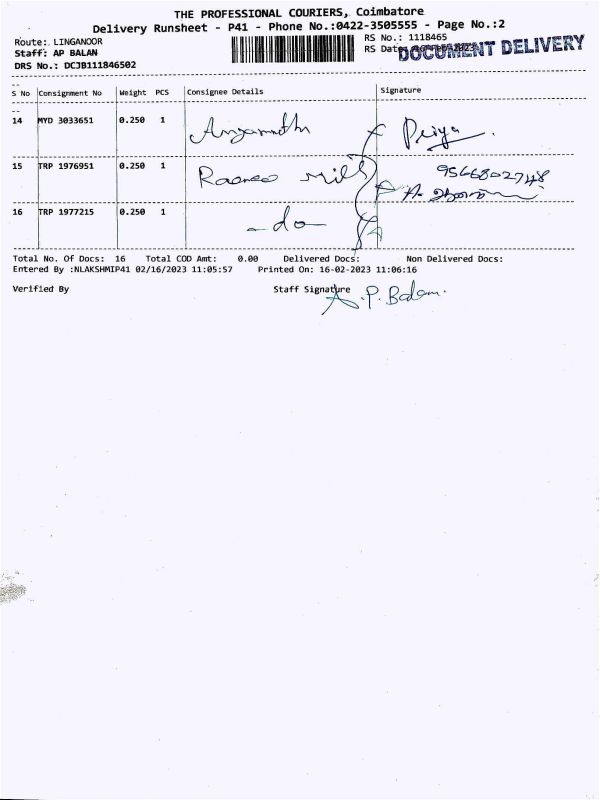 THE PROFESSIONAL COURIERS, Coimbatore
Delivery Runsheet - P41 - Phone No.:0422-3505555 - Page No.:2
Route: LINGANOOR
RS No.: 1118465
Staff: AP BALAN
RS Date
DOCUMENT DELIVERY
DRS No.: DCJB111846502
S No Consignment No Weight PCS Consignee Details Signature
14 MYD 3033651 0.250 1 Priya
15 TRP 1976951 0.250 1 Mill 9566802748
16 TRP 1977215 0.250 1 -do-
Total No. Of Docs: 16 Total COD Amt: 0.00 Delivered Docs: Non Delivered Docs:
Entered By :NLAKSHMIP41 02/16/2023 11:05:57 Printed On: 16-02-2023 11:06:16
Verified By Staff Signature A.P. Balan.